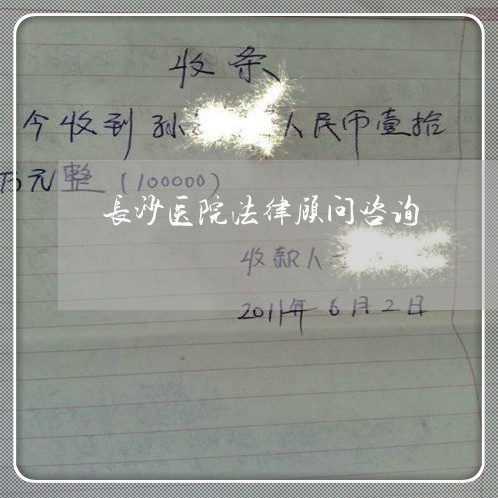 收条
今收到孙 人民币壹拾
万元整(100000)
长沙医院法律顾问咨询
收款人
2011年6月2日